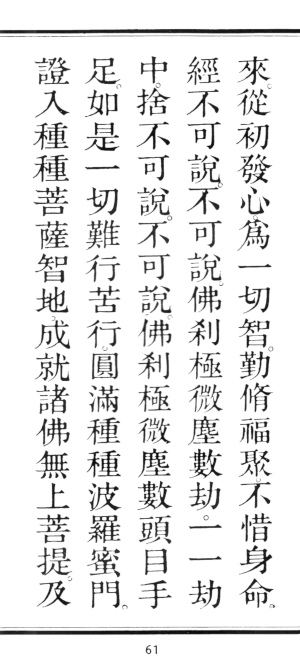 來。從初發心。爲一切智。勤脩福聚。不惜身命。
經不可說。不可說。佛刹極微塵數劫。一一劫
中。捨不可說。不可說。佛刹極微塵數頭目手
足。如是一切難行苦行。圓滿種種波羅蜜門。
證入種種菩薩智地。成就諸佛無上菩提。及
61